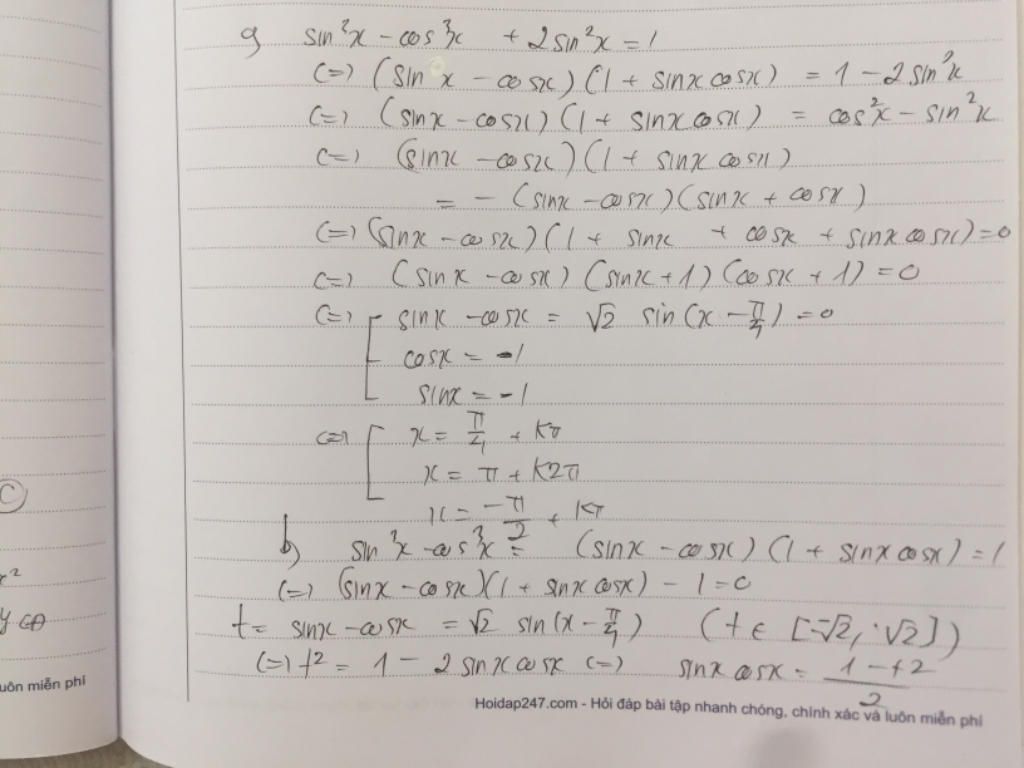 a) sin³x - cos³x + 2sin²x = 1
(=) (sin x - cosx) (1 + sinx cosx) = 1 - 2 sin²x
(=) (sinx - cosx) (1 + sinx cosx) = cos²x - sin²x
(=) (sinx - cosx) (1 + sinx cosx)
= - (sinx - cosx) (sinx + cosx)
(=) (sinx - cosx) (1 + sinx + cosx + sinx cosx) = 0
(=) (sinx - cosx) (sinx + 1) (cosx + 1) = 0
(=) [ sinx - cosx = √2 sin(x - π/4) = 0
cosx = -1
sinx = -1
(=) [ x = π/4 + kπ
x = π + k2π
x = -π/2 + kπ
b) sin³x - cos³x = (sinx - cosx) (1 + sinx cosx) = 1
(=) (sinx - cosx)(1 + sinx cosx) - 1 = 0
t = sinx - cosx = √2 sin(x - π/4) (t ∈ [-√2, √2])
(=) t² = 1 - 2 sinx cosx (=) sinx cosx = (1 - t2)/2
C
x²
y
uôn miễn phí
Hoidap247.com - Hỏi đáp bài tập nhanh chóng, chính xác và luôn miễn phí